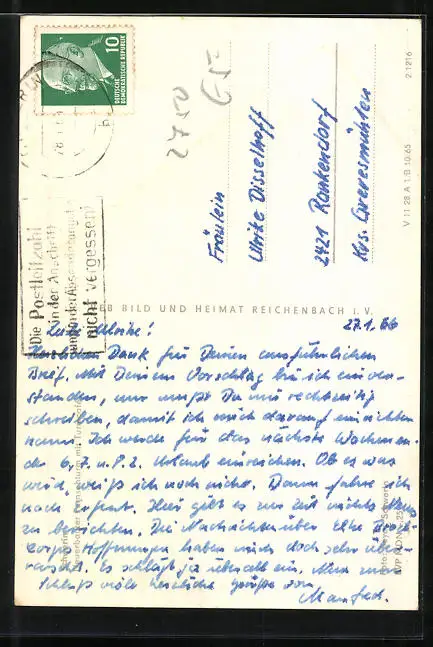 10
DEUTSCHE
DEMOKRATISCHE REPUBLIK
Die Postleitzahl
in der Anschrift
und in der Absenderangabe
nicht vergessen!
2750
65=
Fräulein
Ulrike Disselhoff
2421 Rankendorf
Krs. Grevesmühlen
V 11 28 A 1/B 10/65
2 1216
VEB BILD UND HEIMAT REICHENBACH I. V.
27.1.66
Liebe Ulrike!
Herzlichen Dank für Deinen ausführlichen
Brief. Mit Deinem Vorschlag bin ich einver-
standen, nur mußt Du mir rechtzeitig
schreiben, damit ich mich darauf einrichten
kann. Ich werde für das nächste Wochenen-
de 6., 7. u. 8.2. Urlaub einreichen. Ob es was
wird, weiß ich noch nicht. Dann fahre ich
nach Erfurt. Hier gibt es zur Zeit nichts Neues
zu berichten. Die Nachrichten über Elke
Hoffnungen haben mich doch sehr über-
rascht. Es schlägt ja überall ein. Nun zum
Schluß viele herzliche Grüße von
Manfred.